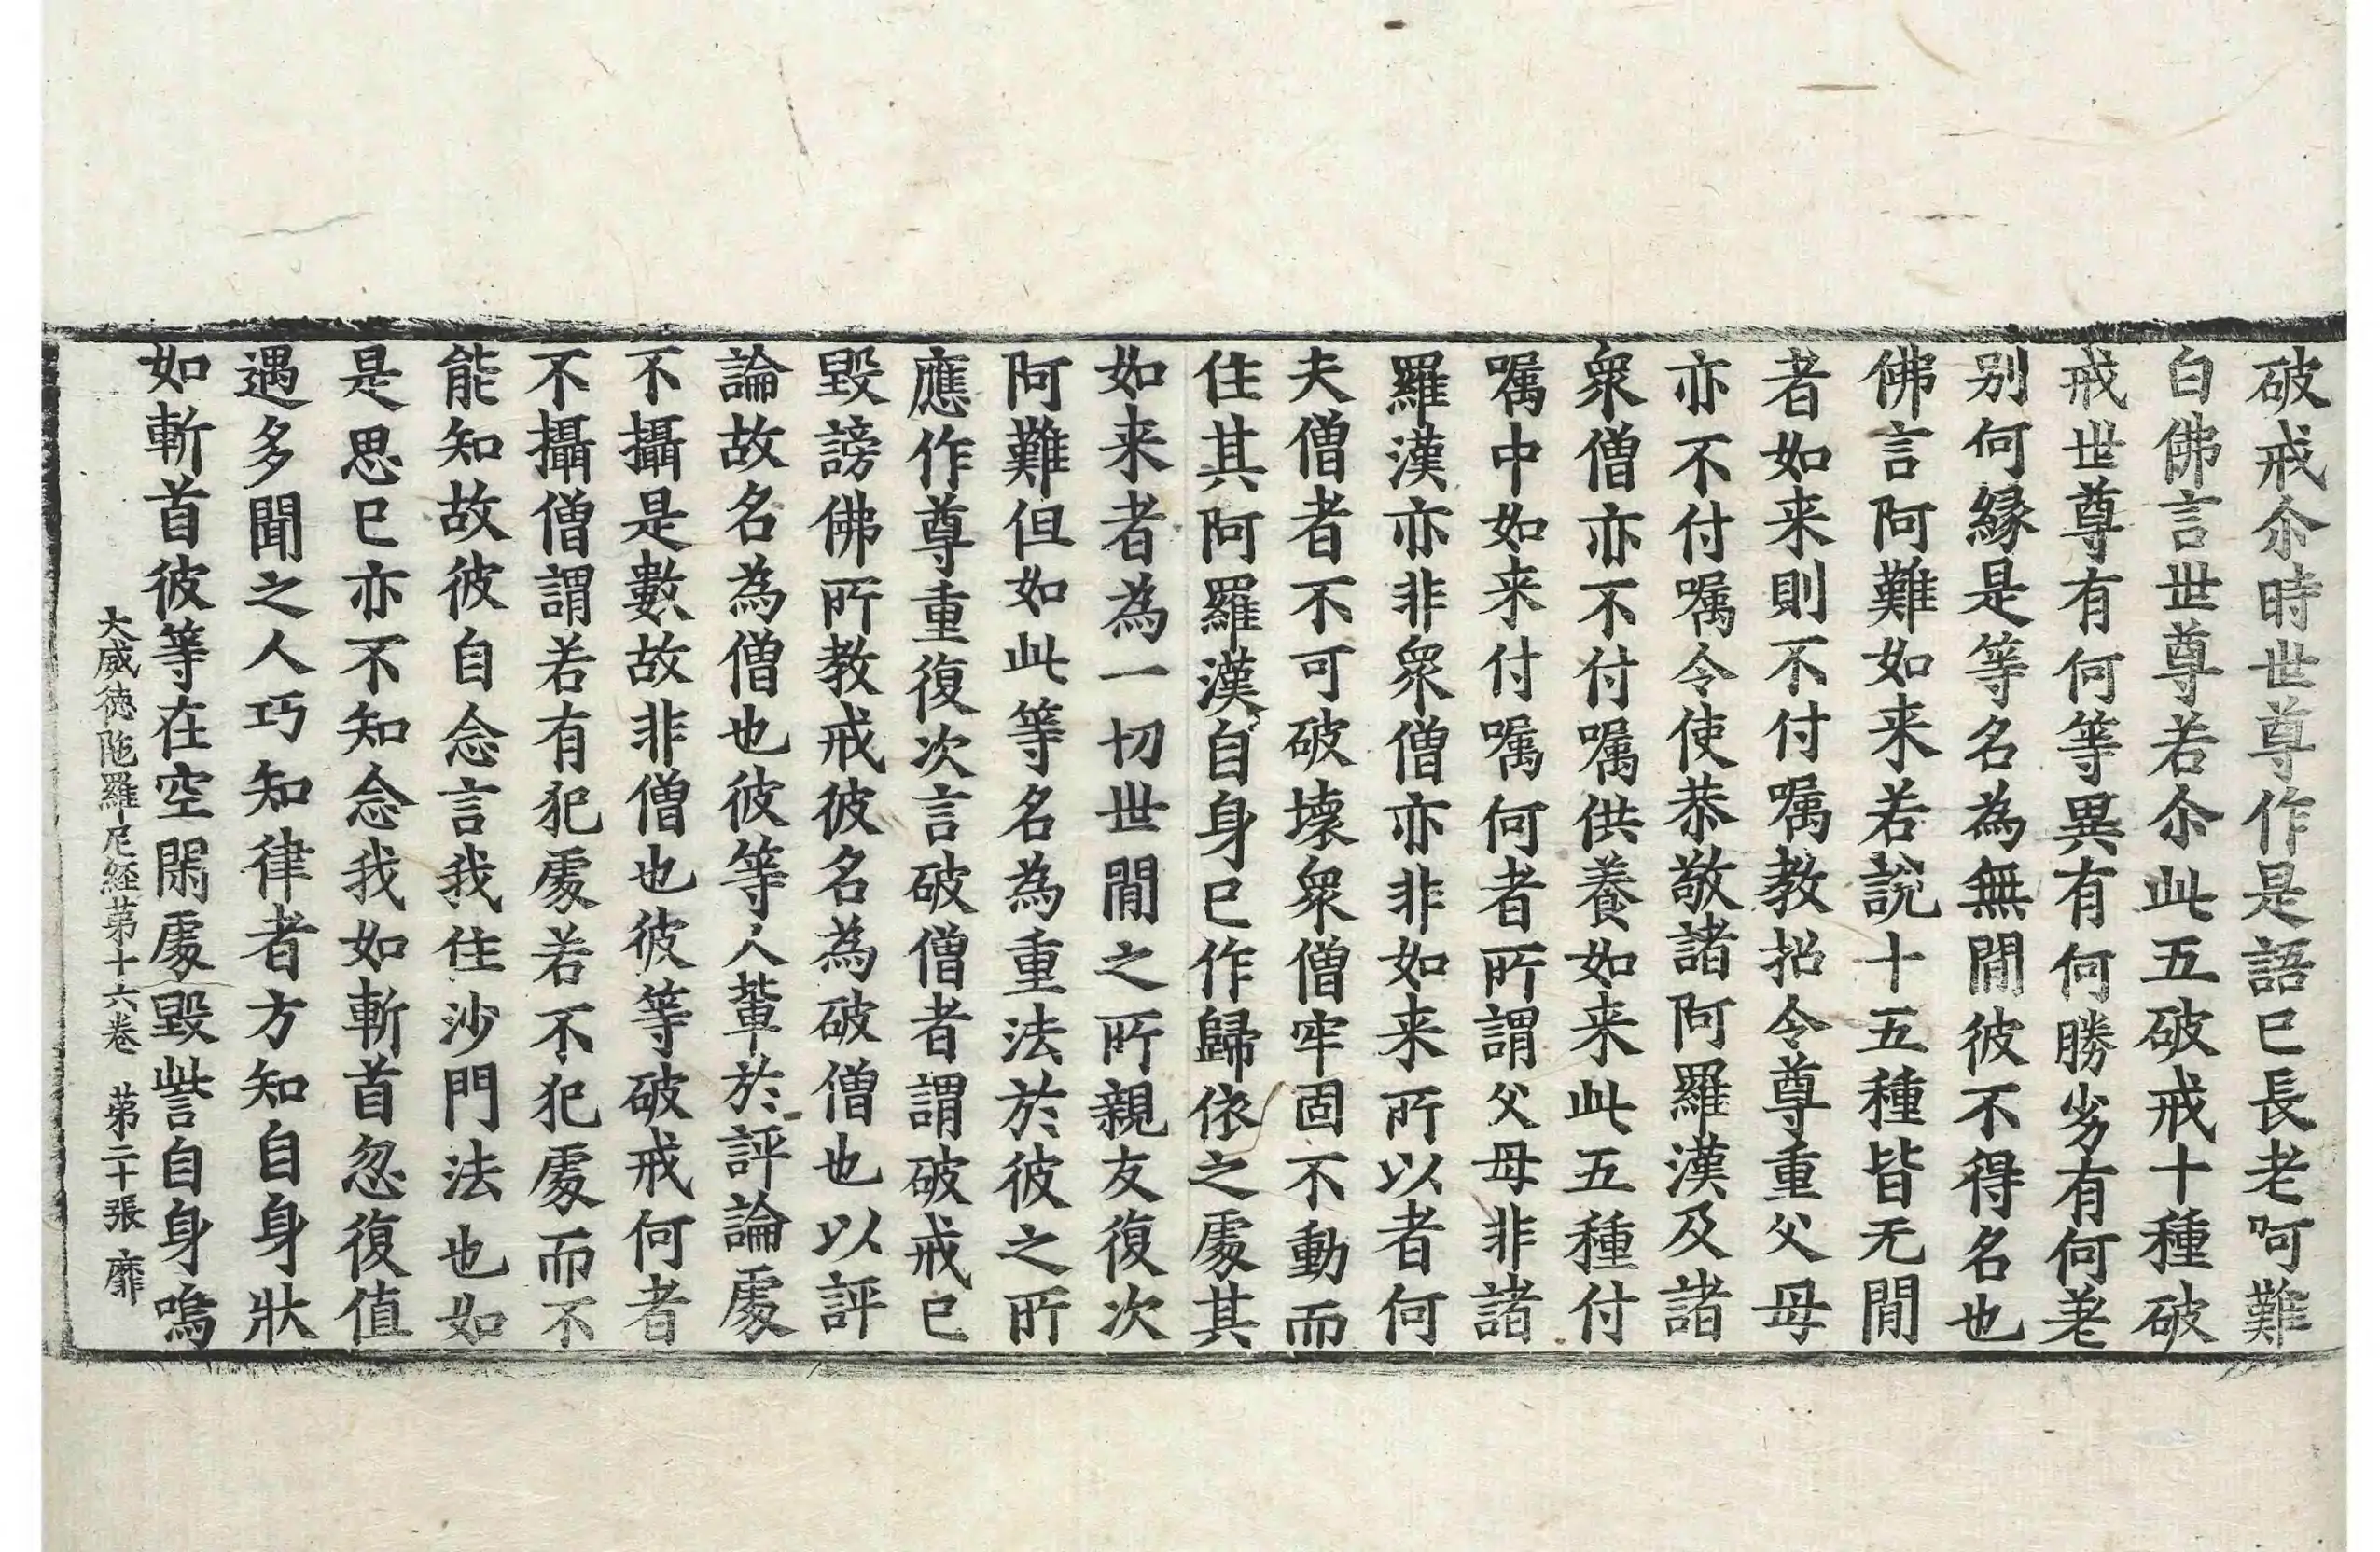 破戒尒時世尊作是語已長老阿難
白佛言世尊若尒此五破戒十種破
戒世尊有何等異有何勝劣有何差
别何縁是等名為無間彼不得名也
佛言阿難如来若說十五種皆无間
者如来則不付嘱教招令尊重父母
亦不付嘱令使恭敬諸阿羅漢及諸
衆僧亦不付嘱供養如来此五種付
嘱中如来付嘱何者所謂父母非諸
羅漢亦非衆僧亦非如来所以者何
夫僧者不可破壞衆僧牢固不動而
住其阿羅漢自身已作歸依之處其
如来者為一切世間之所親友復次
阿難但如此等名為重法於彼之所
應作尊重復次言破僧者謂破戒已
毀謗佛所教戒彼名為破僧也以評
論故名為僧也彼等人軰於評論處
不攝是數故非僧也彼等破戒何者
不攝僧謂若有犯處若不犯處而不
能知故彼自念言我住沙門法也如
是思已亦不知念我如斬首忽復值
遇多聞之人巧知律者方知自身狀
如斬首彼等在空閑處毀訾自身嗚
大威徳陁羅尼経第十六卷 第二十張 靡